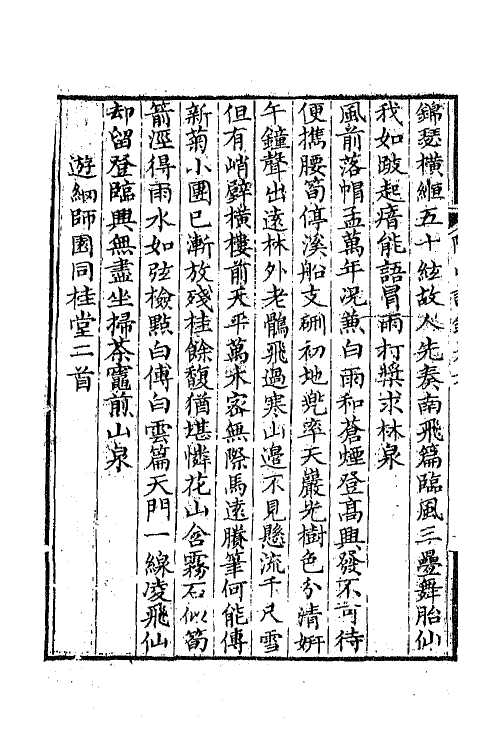 錦瑟橫絚五十絃故人先奏南飛篇臨風三疊舞胎仙
我如跛起瘖能語冒雨打槳求林泉
風前落帽孟萬年況兼白雨和蒼煙登高興發不可待
便攜腰筍停溪船支硎初地兜率天巖光樹色分清妍
午鐘聲出遠林外老鶻飛過寒山邊不見懸流千尺雪
但有峭壁橫樓前天平萬米容無際馬遠賸筆何能傳
新菊小團已漸放殘桂餘馥猶堪憐花山含霧石似筍
箭涇得雨水如弦檢點白傅白雲篇天門一線凌飛仙
却留登臨興無盡坐掃茶竈煎山泉
遊網師園同桂堂二首